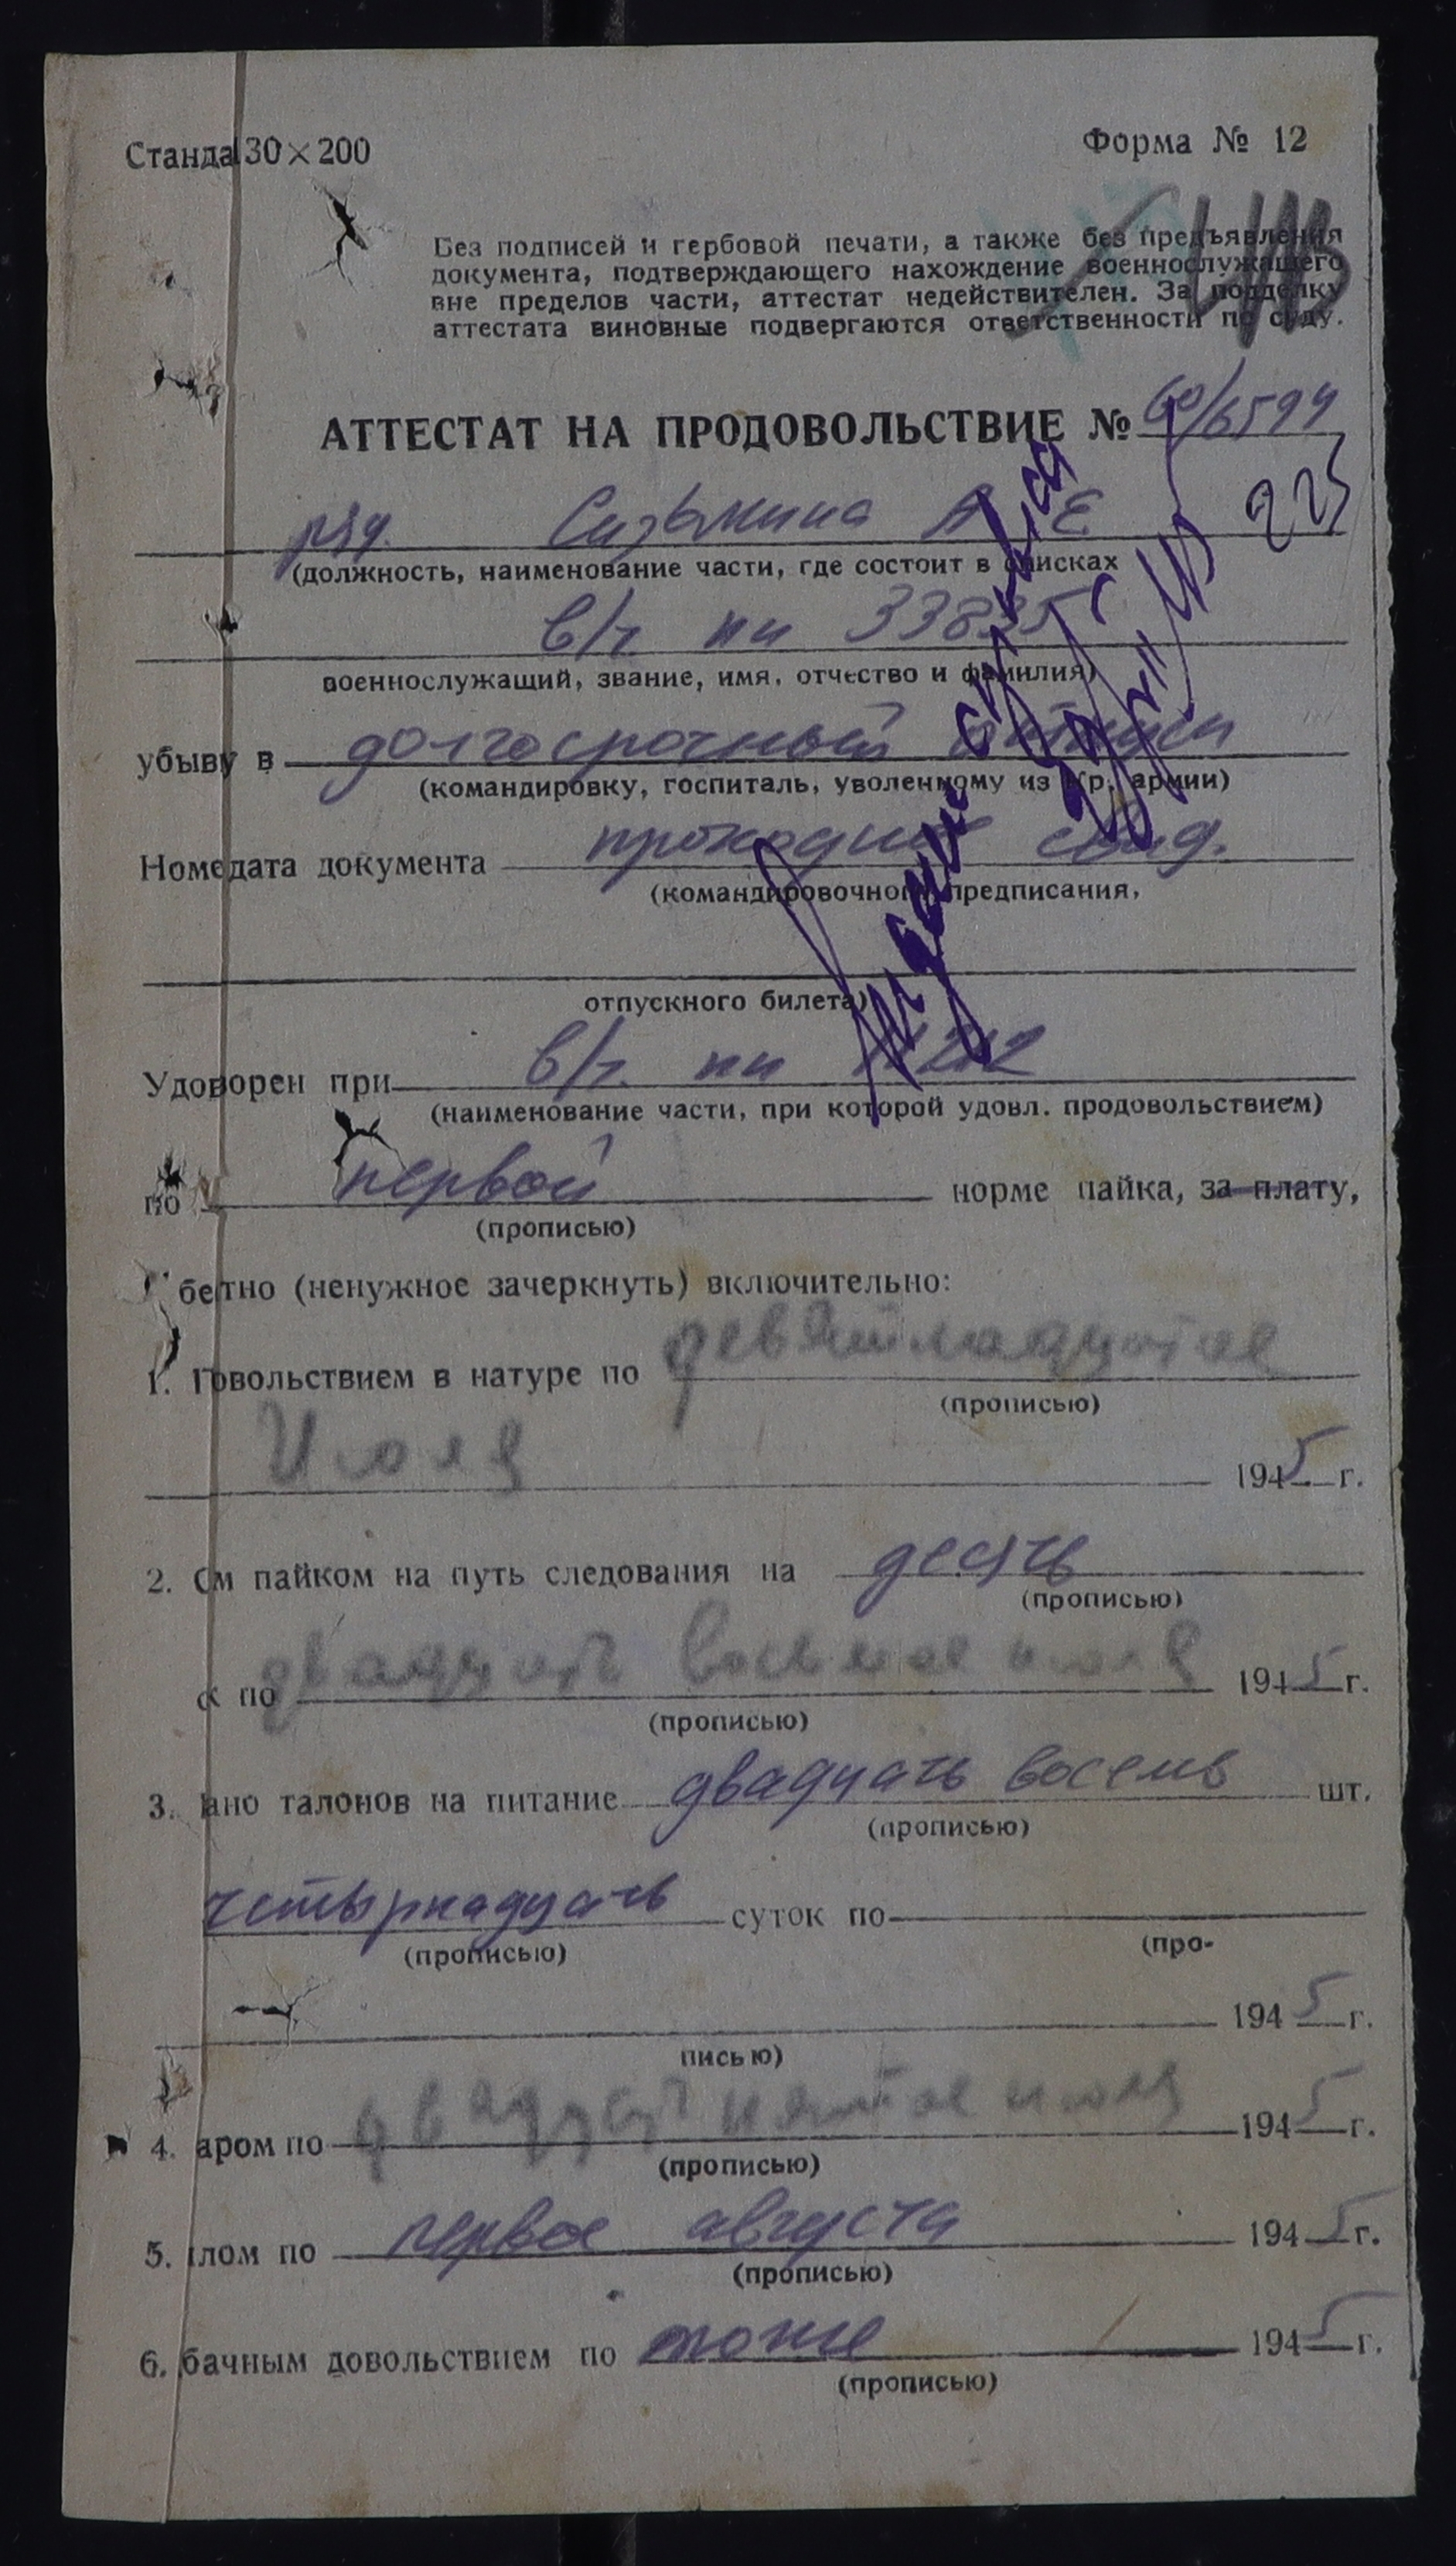 Станда 30×200
Форма № 12
Без подписей и гербовой печати, а также без предъявления
документа, подтверждающего нахождение военнослужащего
вне пределов части, аттестат недействителен. За подделку
аттестата виновные подвергаются ответственности по суду.
АТТЕСТАТ НА ПРОДОВОЛЬСТВИЕ № 60/6594
225
ряд. А Е
(должность, наименование части, где состоит в списках
в/ч пп 33835
военнослужащий, звание, имя, отчество и фамилия)
убыву в долгосрочный отпуск
(командировку, госпиталь, уволенному из Кр. армии)
Номе дата документа проходное свид.
(командировочного предписания,
отпускного билета)
Удоворен при в/ч пп
(наименование части, при которой удовл. продовольствием)
по первой норме пайка, за плату,
(прописью)
бетно (ненужное зачеркнуть) включительно:
1. Говольствием в натуре по девятнадцатое
(прописью)
Июля 1945 г.
2. См пайком на путь следования на десять
(прописью)
к по двадцать восьмое июля 1945 г.
(прописью)
3. ано талонов на питание двадцать восемь шт.
(прописью)
четырнадцать суток по
(прописью) (про-
1945 г.
писью)
4. аром по двадцать пятое июля 1945 г.
(прописью)
5. лом по первое августа 1945 г.
(прописью)
6. бачным довольствием по тоже 1945 г.
(прописью)